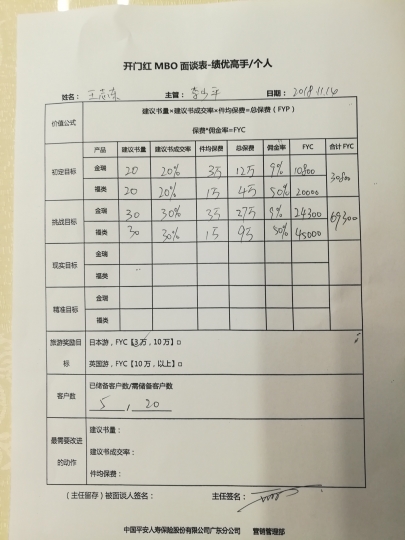 开门红 MBO 面谈表-绩优高手/个人
姓名： 王志 主管： 李少平 日期： 2018.11.14
价值公式 建议书量*建议书成交率*件均保费=总保费（FYP）
保费*佣金率=FYC
产品 建议书量 建议书成交率 件均保费 总保费 佣金率 FYC 合计 FYC
初定目标 金瑞 20 20% 3万 12万 9% 10800 30800
福类 20 20% 1万 4万 50% 20000
挑战目标 金瑞 30 30% 3万 27万 9% 24300 69300
福类 30 30% 1万 9万 50% 45000
现实目标 金瑞
福类
精准目标 金瑞
福类
旅游奖励目标 日本游，FYC【3万，10万】□
英国游，FYC【10万，以上】□
客户数 已储备客户数/需储备客户数
5 , 20
最需要改进的动作 建议书量：
建议书成交率：
件均保费：
（主任留存）被面谈人签名： 主任签名：
中国平安人寿保险股份有限公司广东分公司 营销管理部